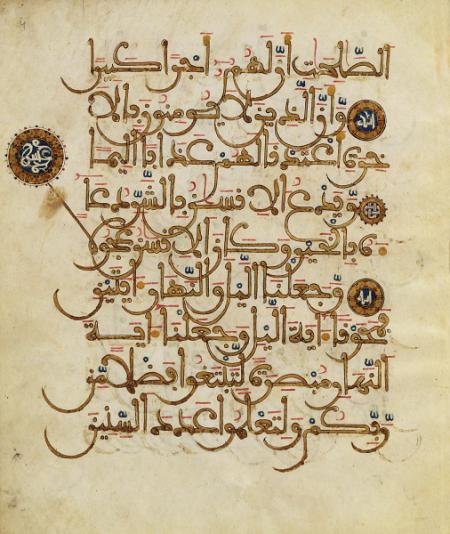 الصَّلِحَتِ أَنَّ لَهُمُ أَجْرًا كَبِيرًا
وَأَنَّ الَّذِينَ لَا يُومِنُونَ بِالَا
خِرَةِ أَعْتَدْنَا لَهُمْ عَذَابًا أَلِيمًا
وَيَدْعُ الِانسَنُ بِالشَّرِّ دُعَا
ءَهُ بِالْخَيْرِ وَكَانَ الِانسَنُ عَجُولًا
وَجَعَلْنَا الَّيْلَ وَالنَّهَارَ ءَايَتَيْنِ
فَمَحَوْنَا ءَايَةَ الَّيْلِ وَجَعَلْنَا ءَايَةَ
النَّهَارِ مُبْصِرَةً لِّتَبْتَغُوا فَضْلًا مِّن
رَّبِّكُمْ وَلِتَعْلَمُوا عَدَدَ السِّنِينَ